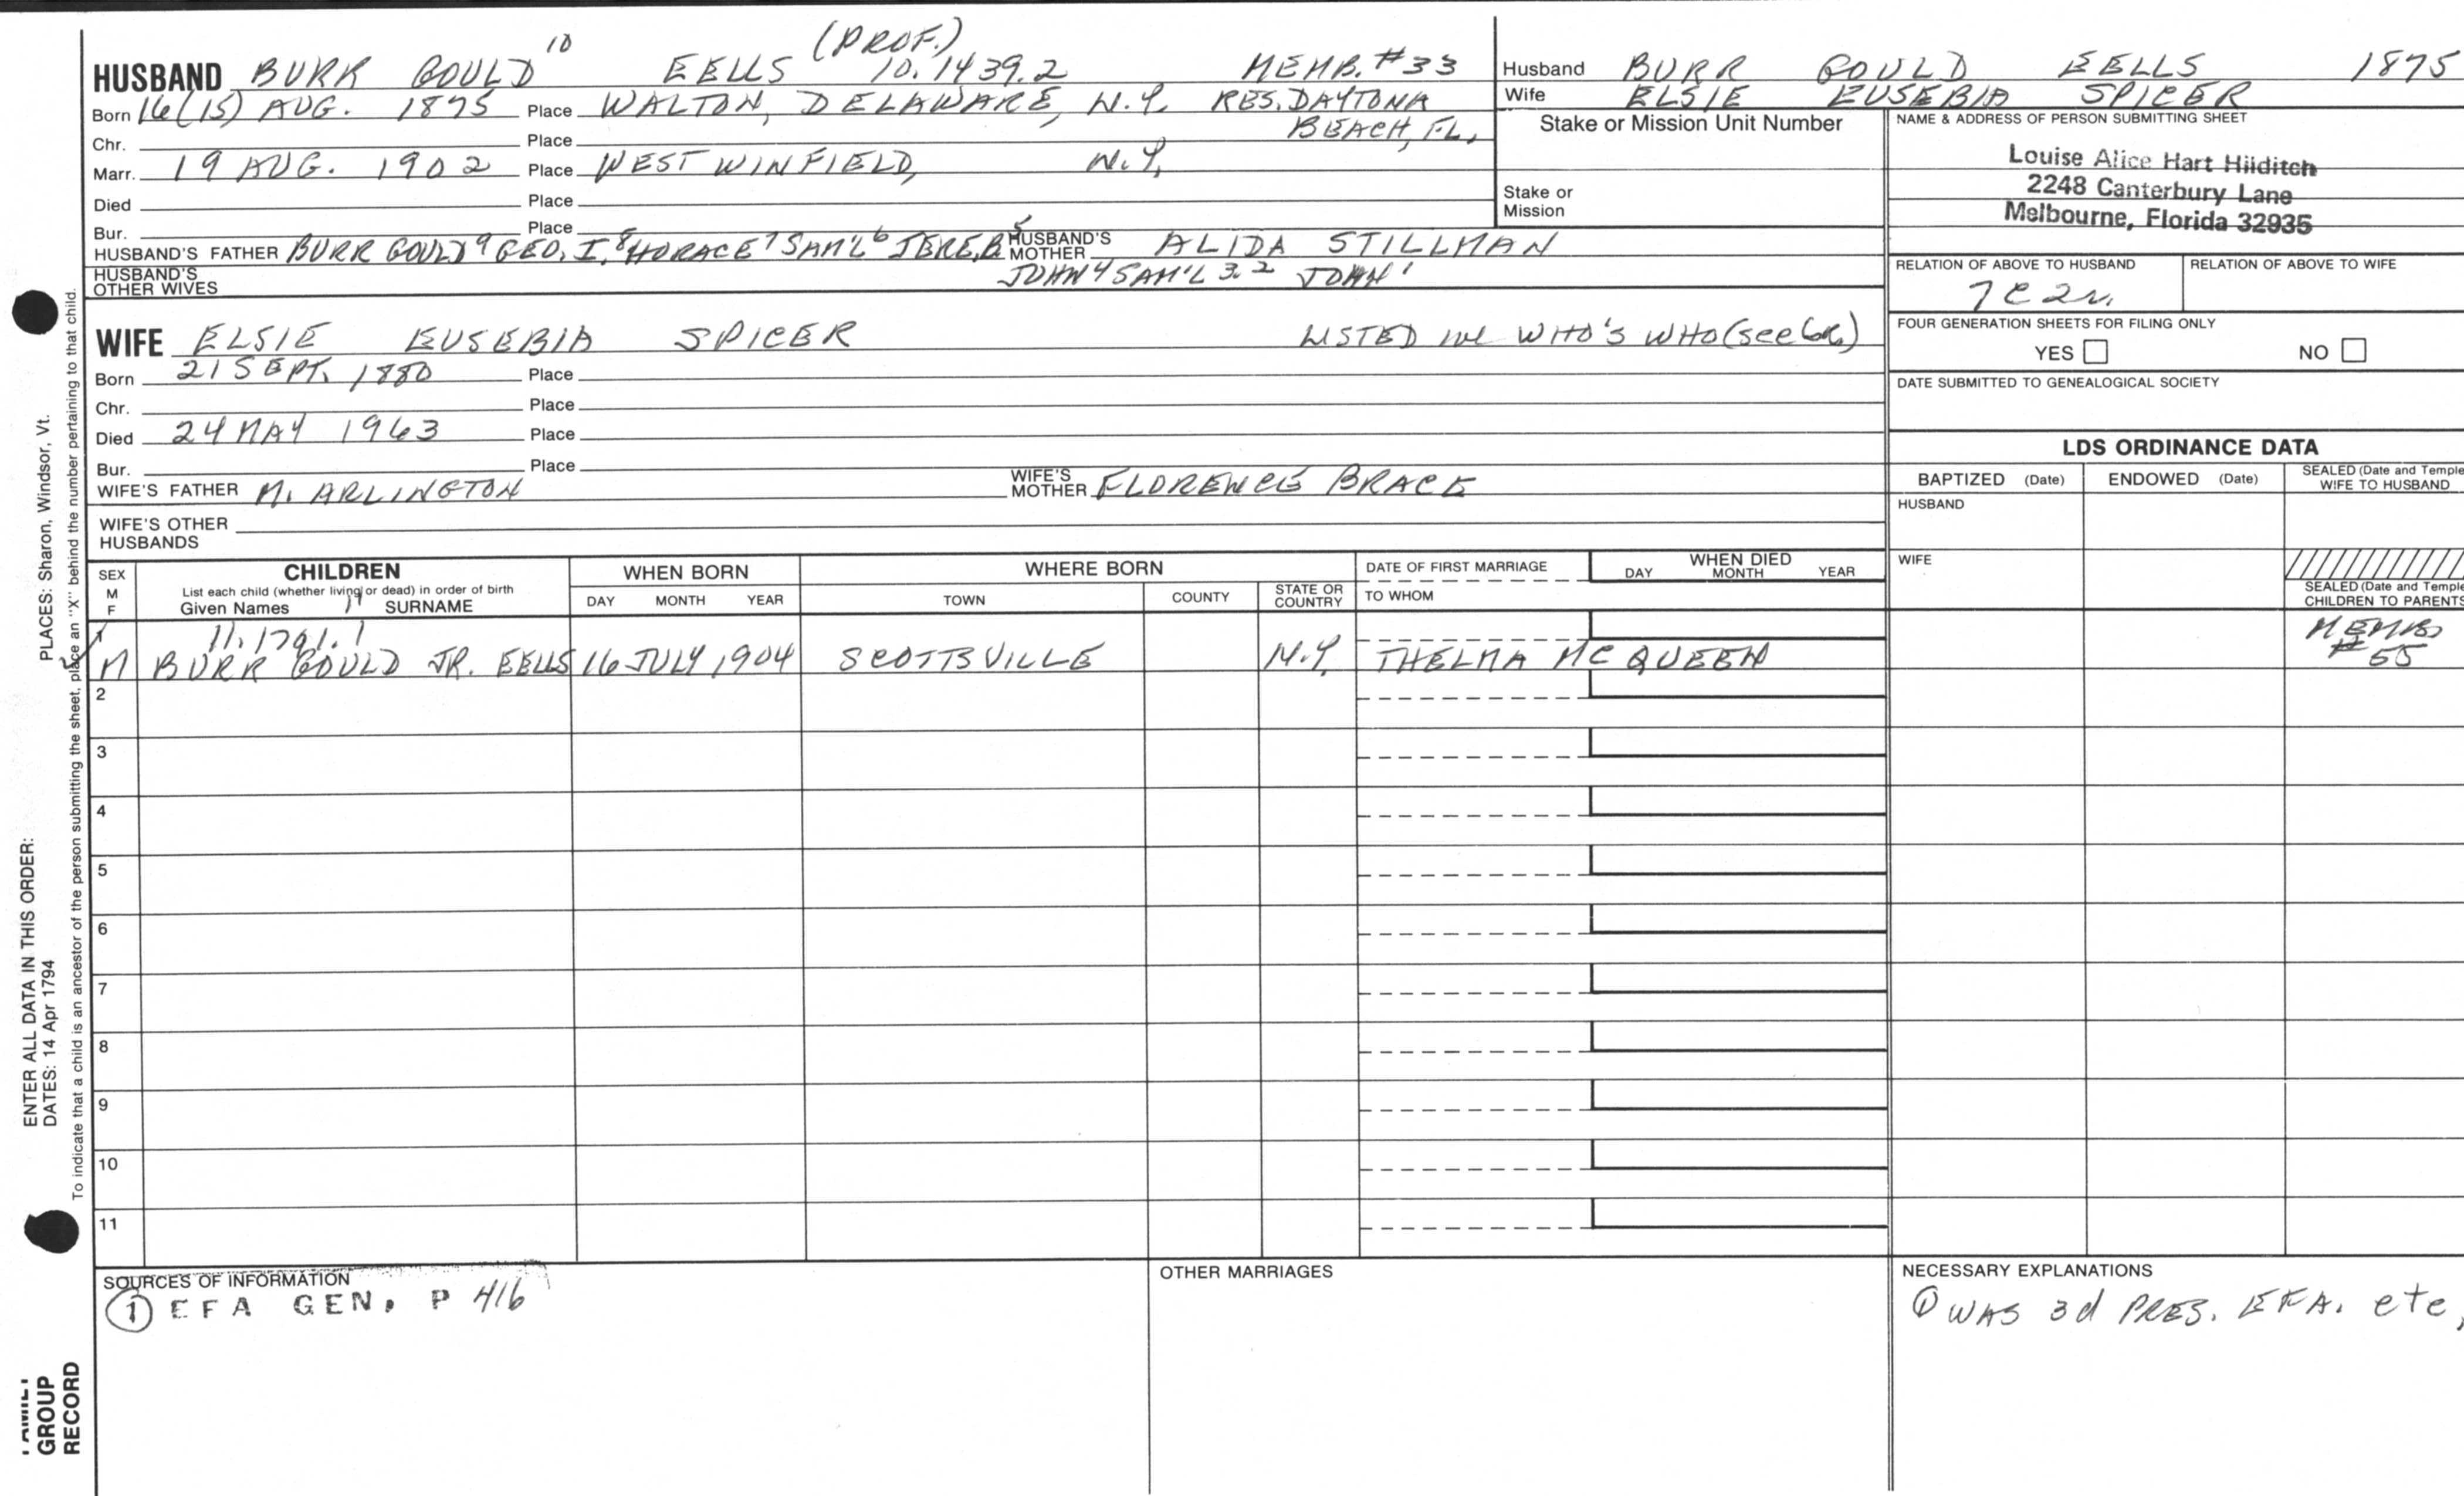 10 (PROF.)
HUSBAND BURR GOULD EELLS 10.1439.2 MEMB. #33
Born 16(15) AUG. 1875 Place WALTON, DELAWARE, N.Y. RES. DAYTONA
BEACH, FL,
Chr. Place
Marr. 19 AUG. 1902 Place WEST WINFIELD, N.Y.
Died Place
Bur. Place
HUSBAND'S FATHER BURR GOULD 9 GEO. I. 8 HORACE 7 SAM'L 6 JERE. B 5 HUSBAND'S MOTHER ALIDA STILLMAN
HUSBAND'S OTHER WIVES JOHN 4 SAM'L 3. 2 JOHN 1
WIFE ELSIE EUSEBIA SPICER LISTED IN WHO'S WHO (see
Born 21 SEPT. 1880 Place
Chr. Place
Died 24 MAY 1963 Place
Bur. Place
WIFE'S FATHER M. ARLINGTON WIFE'S MOTHER FLORENCE BRACE
WIFE'S OTHER
HUSBANDS
Husband BURR GOULD EELLS 1875
Wife ELSIE EUSEBIA SPICER
Stake or Mission Unit Number
Stake or
Mission
NAME & ADDRESS OF PERSON SUBMITTING SHEET
Louise Alice Hart Hilditch
2248 Canterbury Lane
Melbourne, Florida 32935
RELATION OF ABOVE TO HUSBAND RELATION OF ABOVE TO WIFE
7C2R
FOUR GENERATION SHEETS FOR FILING ONLY
YES NO
DATE SUBMITTED TO GENEALOGICAL SOCIETY
LDS ORDINANCE DATA
BAPTIZED (Date) ENDOWED (Date) SEALED (Date and Temple
WIFE TO HUSBAND
HUSBAND
WIFE
SEALED (Date and Temple
CHILDREN TO PARENTS
SEX
M
F
CHILDREN
List each child (whether living or dead) in order of birth
Given Names 11 SURNAME
WHEN BORN
DAY MONTH YEAR
WHERE BORN
TOWN COUNTY STATE OR COUNTRY
DATE OF FIRST MARRIAGE
TO WHOM
WHEN DIED
DAY MONTH YEAR
1 11.1791.1
M BURR GOULD JR. EELLS 16 JULY 1904 SCOTTSVILLE N.Y. THELMA MC QUEEN MEMB
# 55
2
3
4
5
6
7
8
9
10
11
SOURCES OF INFORMATION
1 EFA GEN. P 416
OTHER MARRIAGES
NECESSARY EXPLANATIONS
1 WAS 3d PRES. EFA. etc,
ENTER ALL DATA IN THIS ORDER:
DATES: 14 Apr 1794
PLACES: Sharon, Windsor, Vt.
To indicate that a child is an ancestor of the person submitting the sheet, place an "X" behind the number pertaining to that child.
FAMILY
GROUP
RECORD